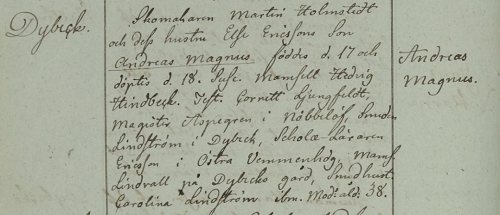 Dybeck.
Skomakaren Martin Holmstedt
och dess hustru Else Ericssons Son
Andreas Magnus, föddes d. 17 och
döptes d. 18. Susc. Mamsell Hedvig
Lindbeck. Test. Cornett Ljungfeldt,
Magister Aspegren i Nöbbelöf, Smeden
Lindström i Dybeck, Scholæ-Läraren
Ericson i Östra Vemmenhög, Mams.
Lindvall på Dybecks gard, Smedhust.
Carolina Lindström ibm. Mod. ald. 38.
Andreas
Magnus.